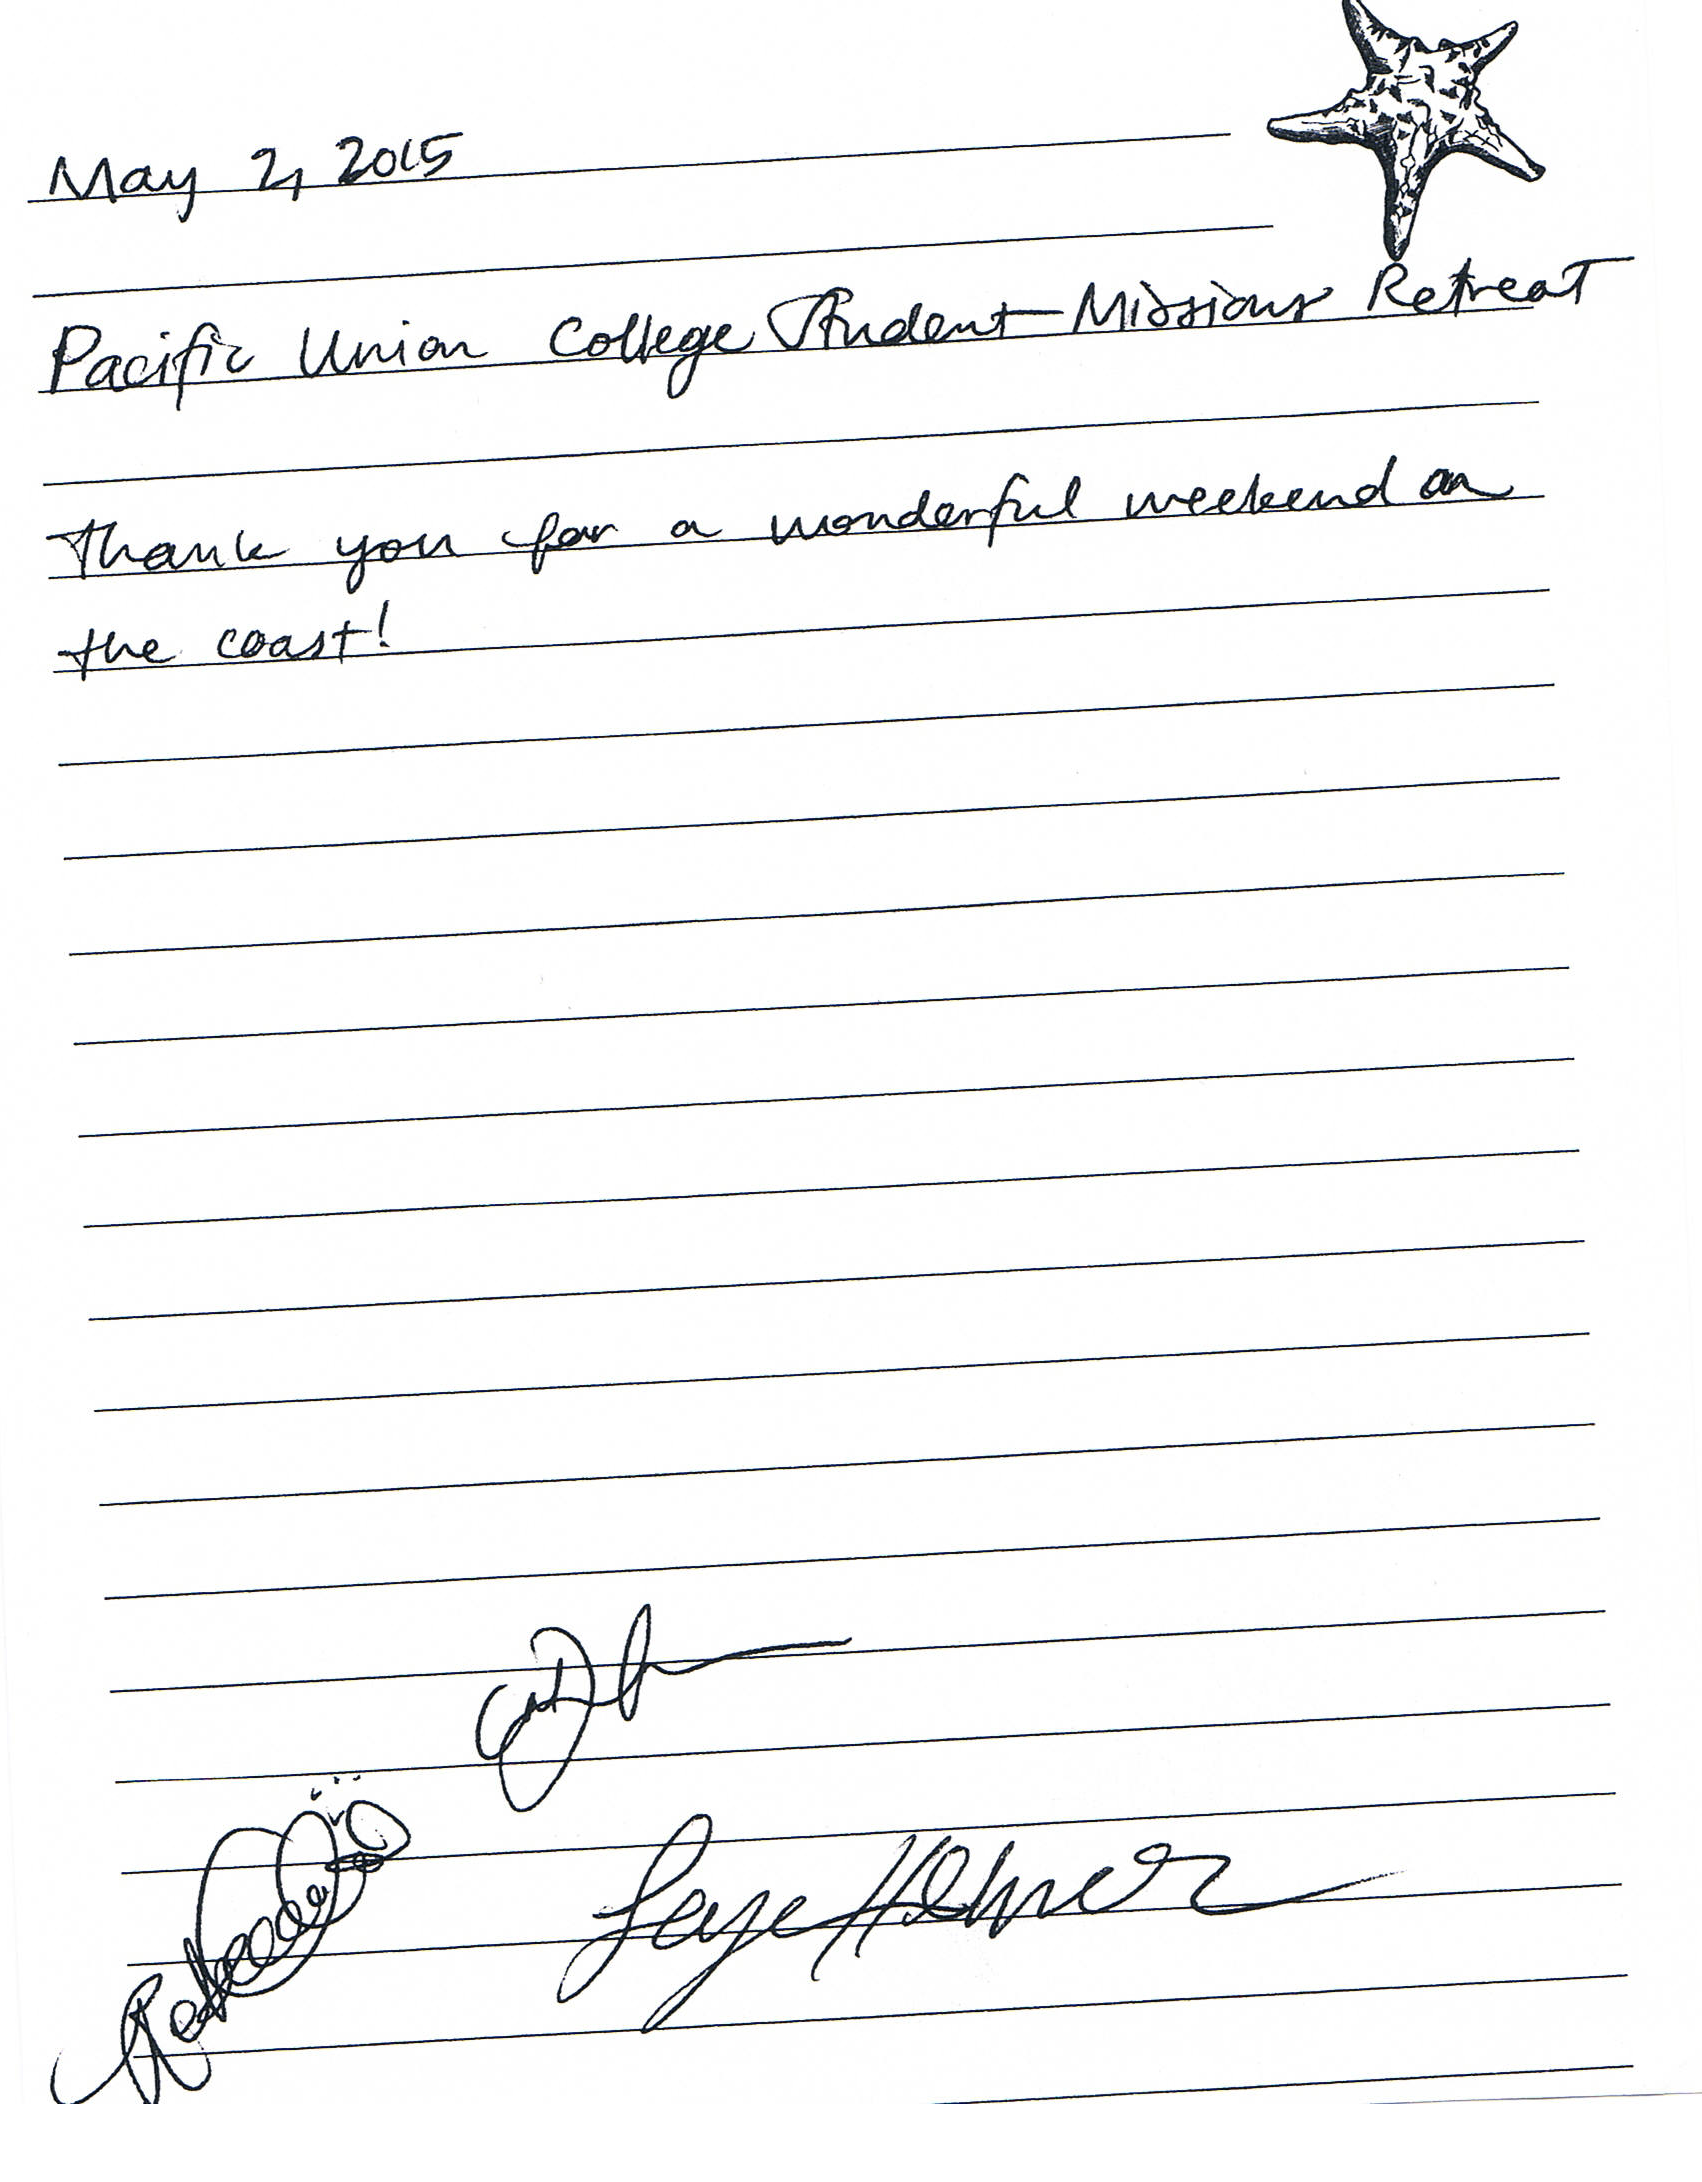 May 2, 2015
Pacific Union College Student Missions Retreat
Thank you for a wonderful weekend on
the coast!
Faye
Rebecca